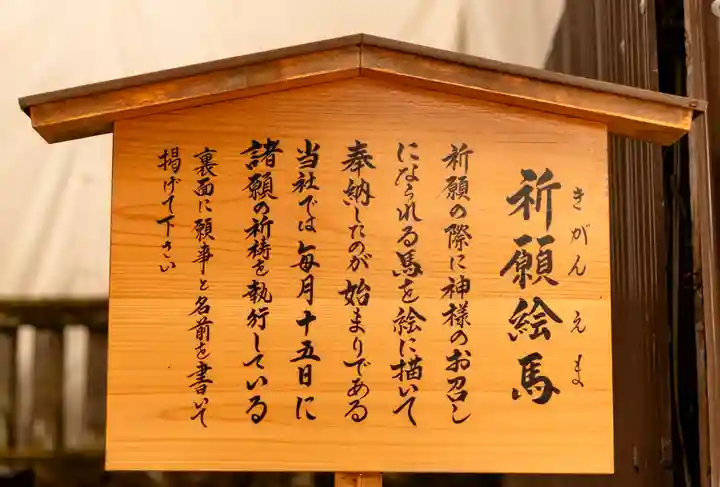 祈願絵馬
きがんえま
祈願の際に神様のお召し
になられる馬を絵に描いて
奉納したのが始まりである
当社では毎月十五日に
諸願の祈祷を執行している
裏面に願事と名前を書いて
掲げて下さい